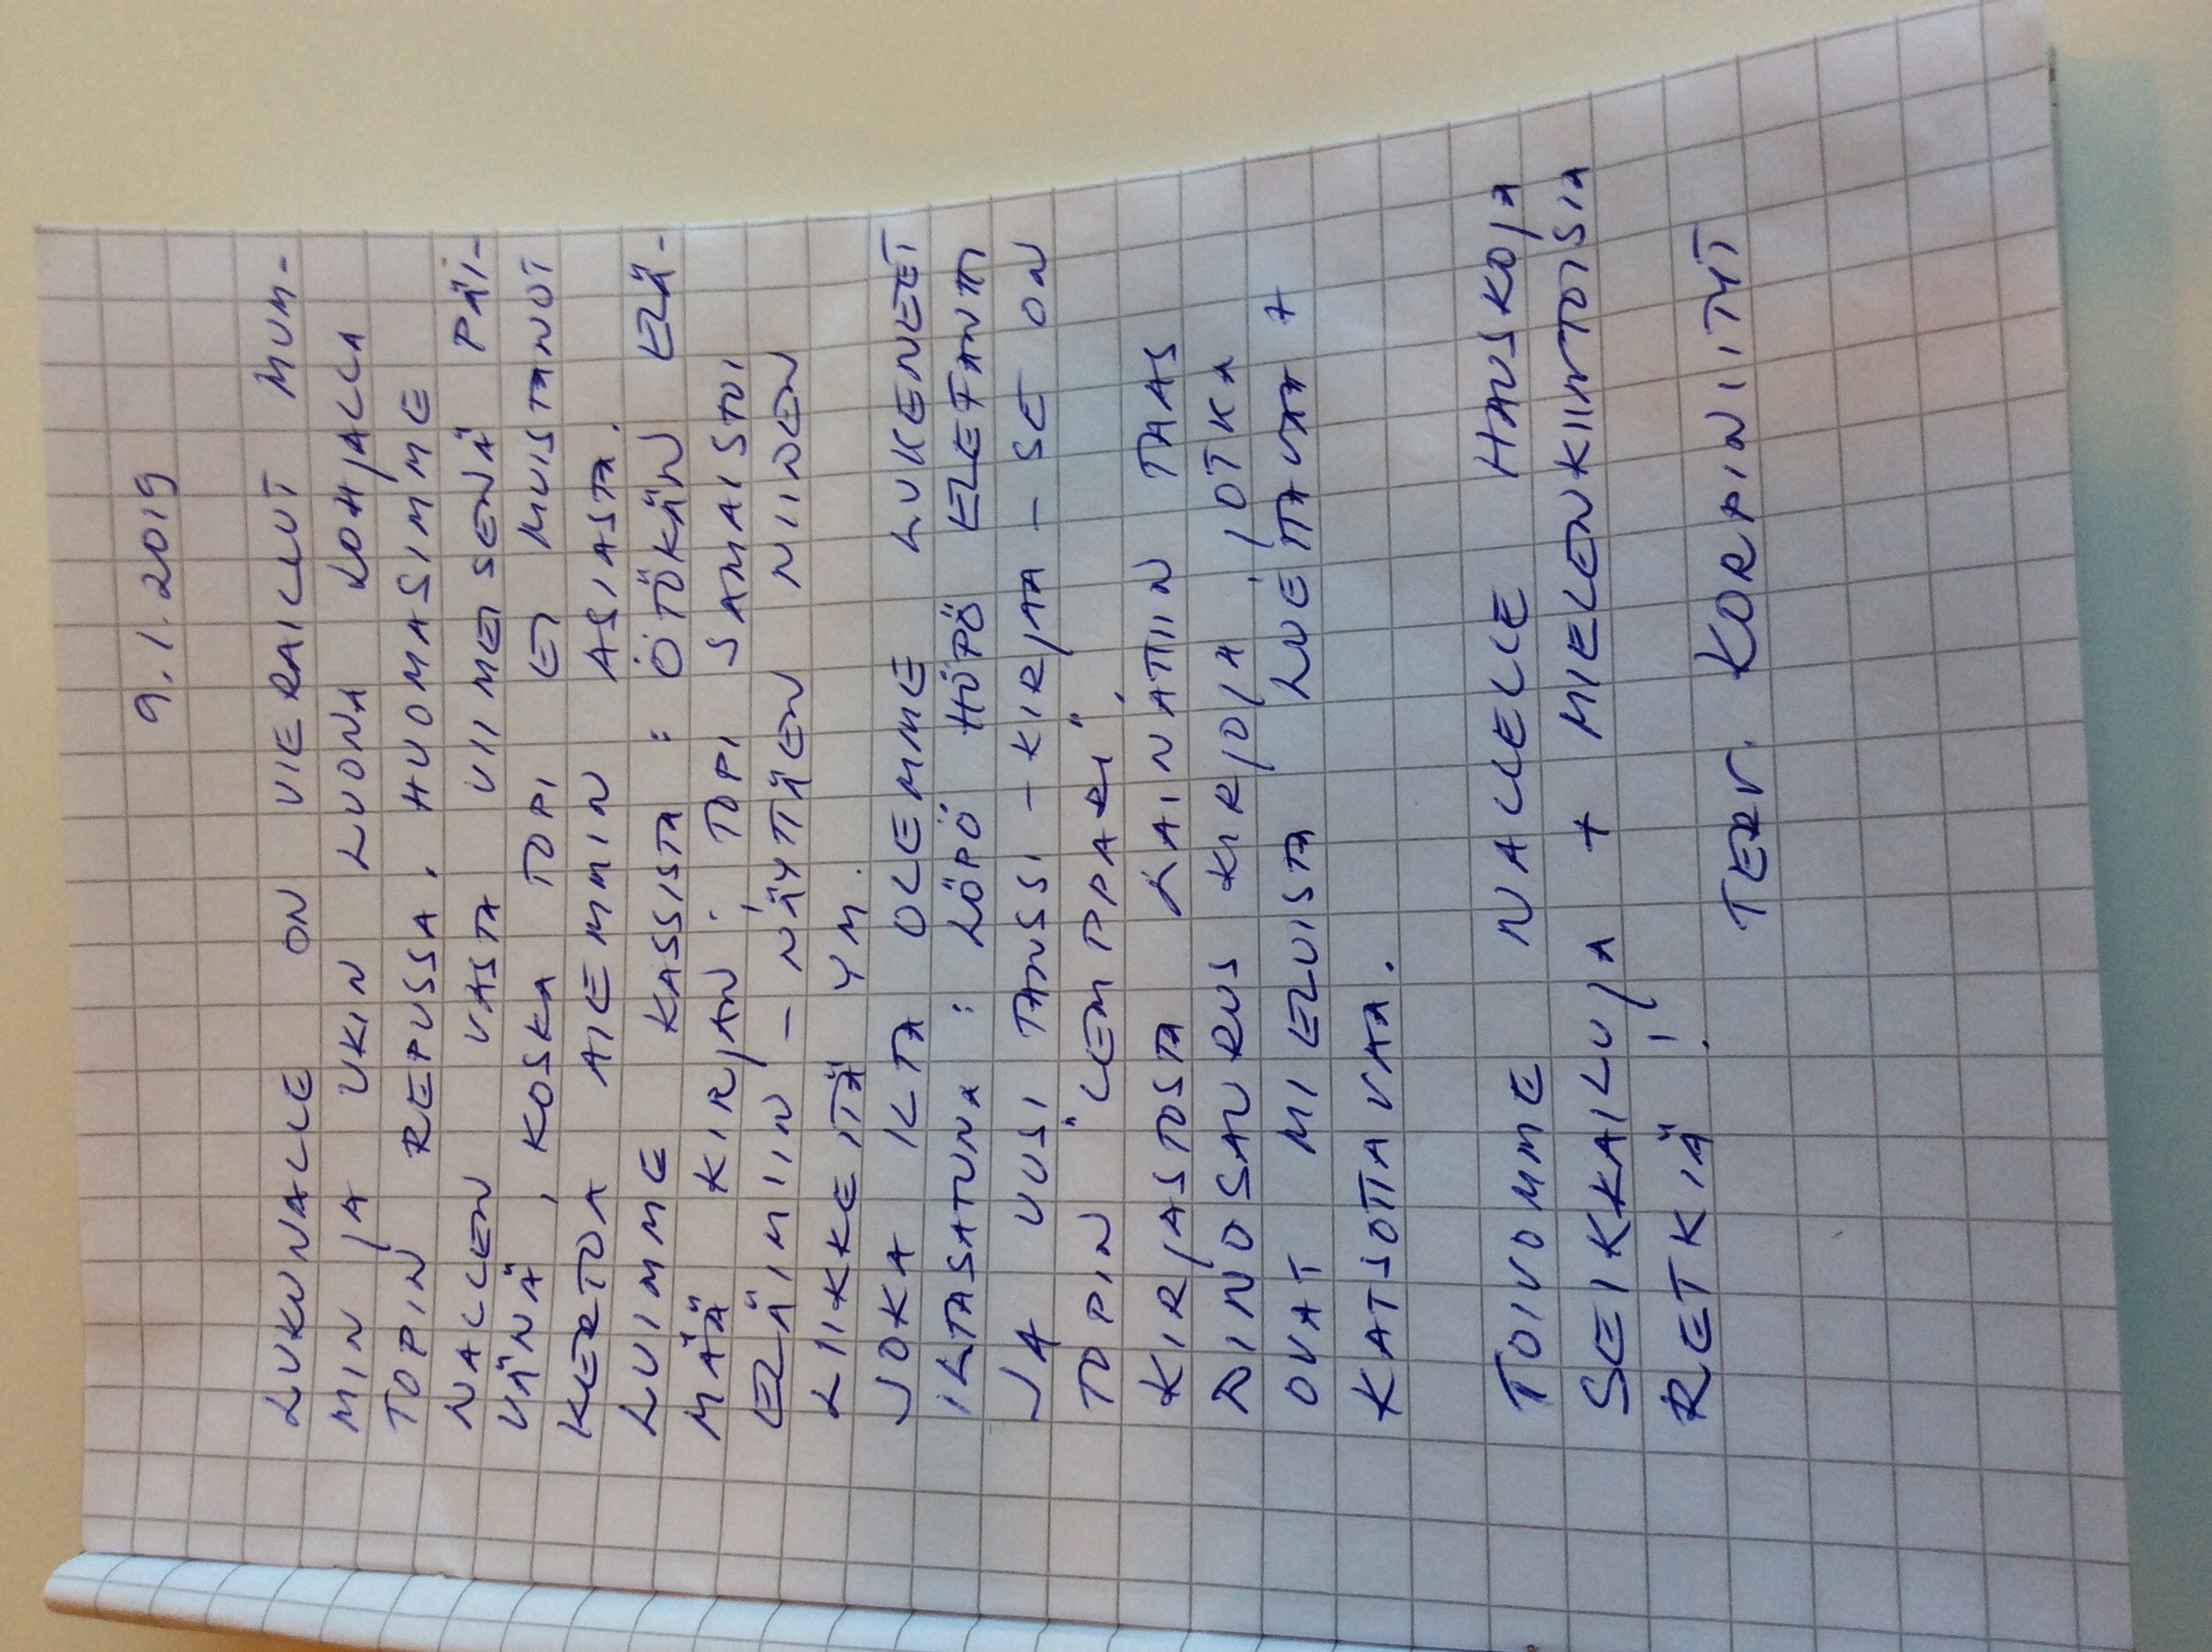 9.1.2019
LUKUNALLE ON VIERAILLUT MUM-
MIN JA UKIN LUONA LOHJALLA
TOPIN REPUSSA. HUOMASIMME
NALLEN VASTA VIIMEISENÄ PÄI-
VÄNÄ, KOSKA TOPI EI MUISTANUT
KERTOA AIEMMIN ASIASTA.
LUIMME KASSISTA: ÖTÖKÄN ELÄ-
MÄÄ KIRJAN. TOPI SAMAISTUI
ELÄIMIIN - NÄYTTÄEN NIIDEN
LIIKKEITÄ YM.
JOKA ILTA OLEMME LUKENEET
ILTASATUNA: LÖPÖ HÖPÖ ELEFANTTI
JA UUSI TANSSI - KIRJAA - SE ON
TOPIN "LEMPPARI".
KIRJASTOSTA LAINATTIIN TAAS
DINOSAURUS KIRJOJA, JOTKA
OVAT MIELUISTA LUETTAVAA +
KATSOTTAVAA.
TOIVOMME NALLELLE HAUSKOJA
SEIKKAILUJA + MIELENKIINTOISIA
RETKIÄ!
TERV. KORPINIITYT